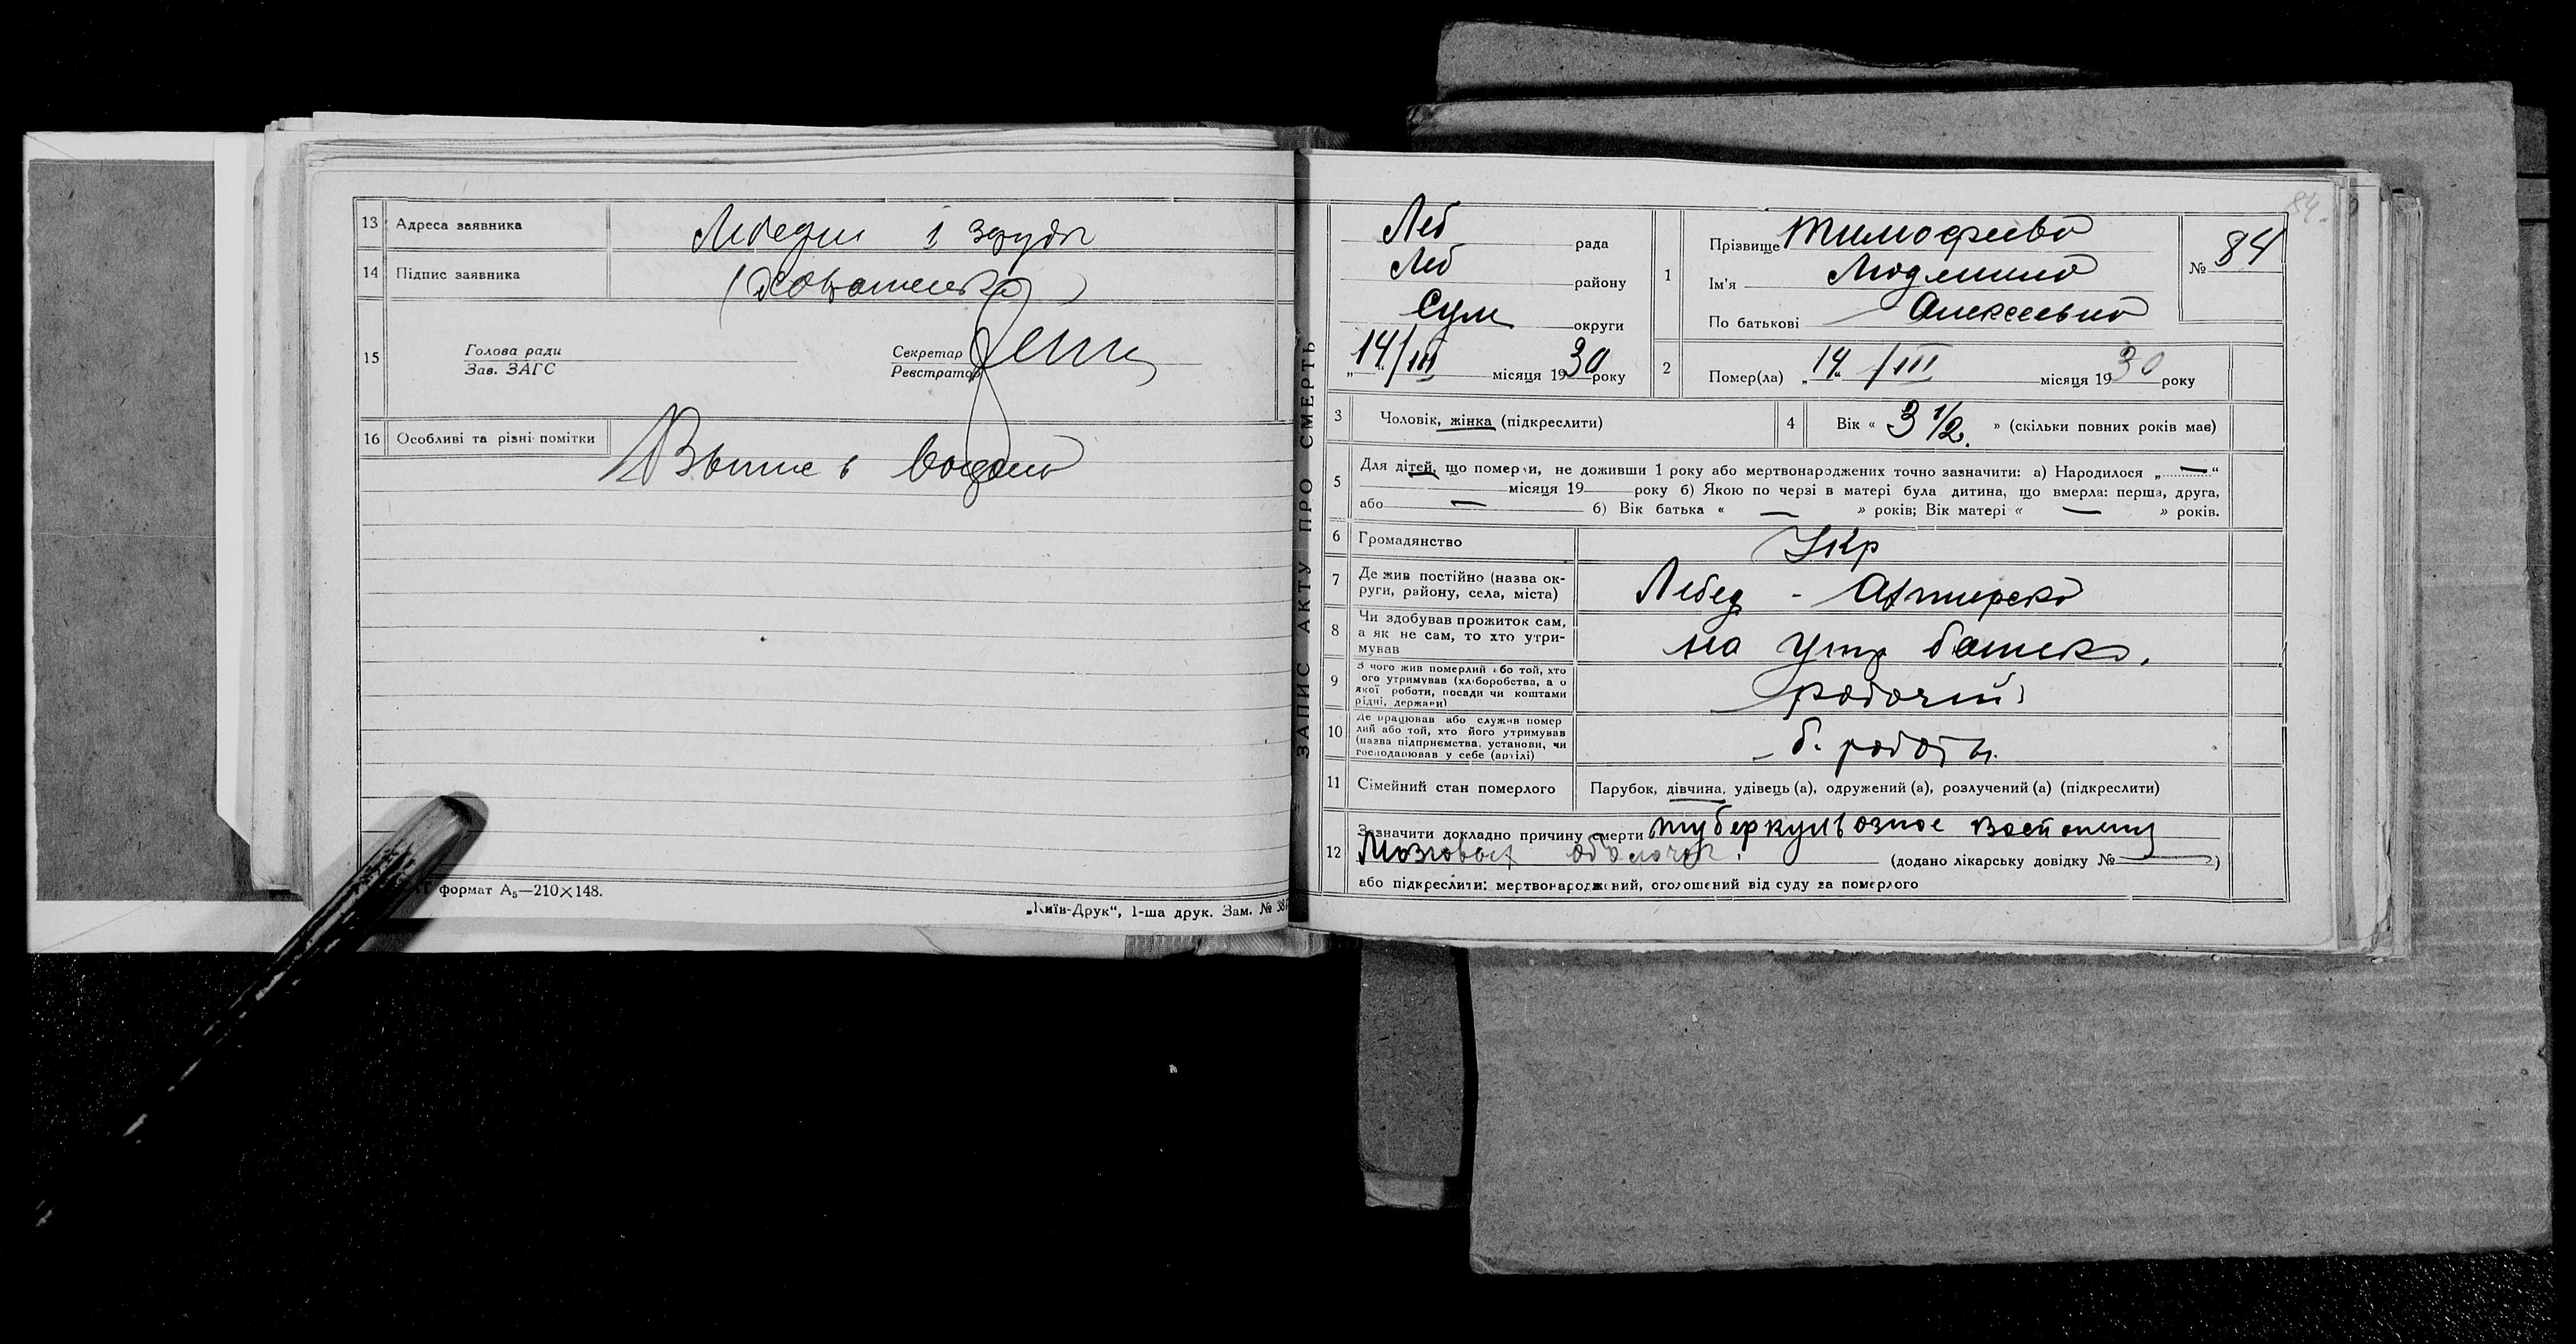 13 Адреса заявника Лебедин 1
14 Підпис заявника
15 Голова ради
Зав. ЗАГС
Секретар
Реєстратор
16 Особливі та різні помітки
формат А5—210×148.
„Київ-Друк“, 1-ша друк. Зам. №
ЗАПИС АКТУ ПРО СМЕРТЬ
84
Леб рада
Леб району
Сум округи
„14“/III місяця 1930 року
1 Прізвище Тимофеева
Ім'я Людмила
По батькові Алексеевна
№ 84
2 Помер(ла) „14“ /III місяця 1930 року
3 Чоловік, жінка (підкреслити)
4 Вік « 3 1/2 » (скільки повних років має)
5 Для дітей, що померли, не доживши 1 року або мертвонароджених точно зазначити: а) Народилося „—“
місяця 19 року б) Якою по черзі в матері була дитина, що вмерла: перша, друга,
або — б) Вік батька « — » років; Вік матері « — » років.
6 Громадянство Укр
7 Де жив постійно (назва ок-
руги, району, села, міста) Лебед - Ахтирска
8 Чи здобував прожиток сам,
а як не сам, то хто утри-
мував на утр батька.
9 З чого жив померлий або той, хто
ого утримував (хліборобства, а о
якої роботи, посади чи коштами
рідні, держави) рабочий
10 Де працював або служив помер
лий або той, хто його утримував
(назва підприємства, установи, чи
господарював у себе (артілі) б. работы.
11 Сімейний стан померлого Парубок, дівчина, удівець (а), одружений (а), розлучений (а) (підкреслити)
12 Зазначити докладно причину смерти туберкульозное
Мозговых оболочек. (додано лікарську довідку № — )
або підкреслити: мертвонароджений, оголошений від суду за померлого